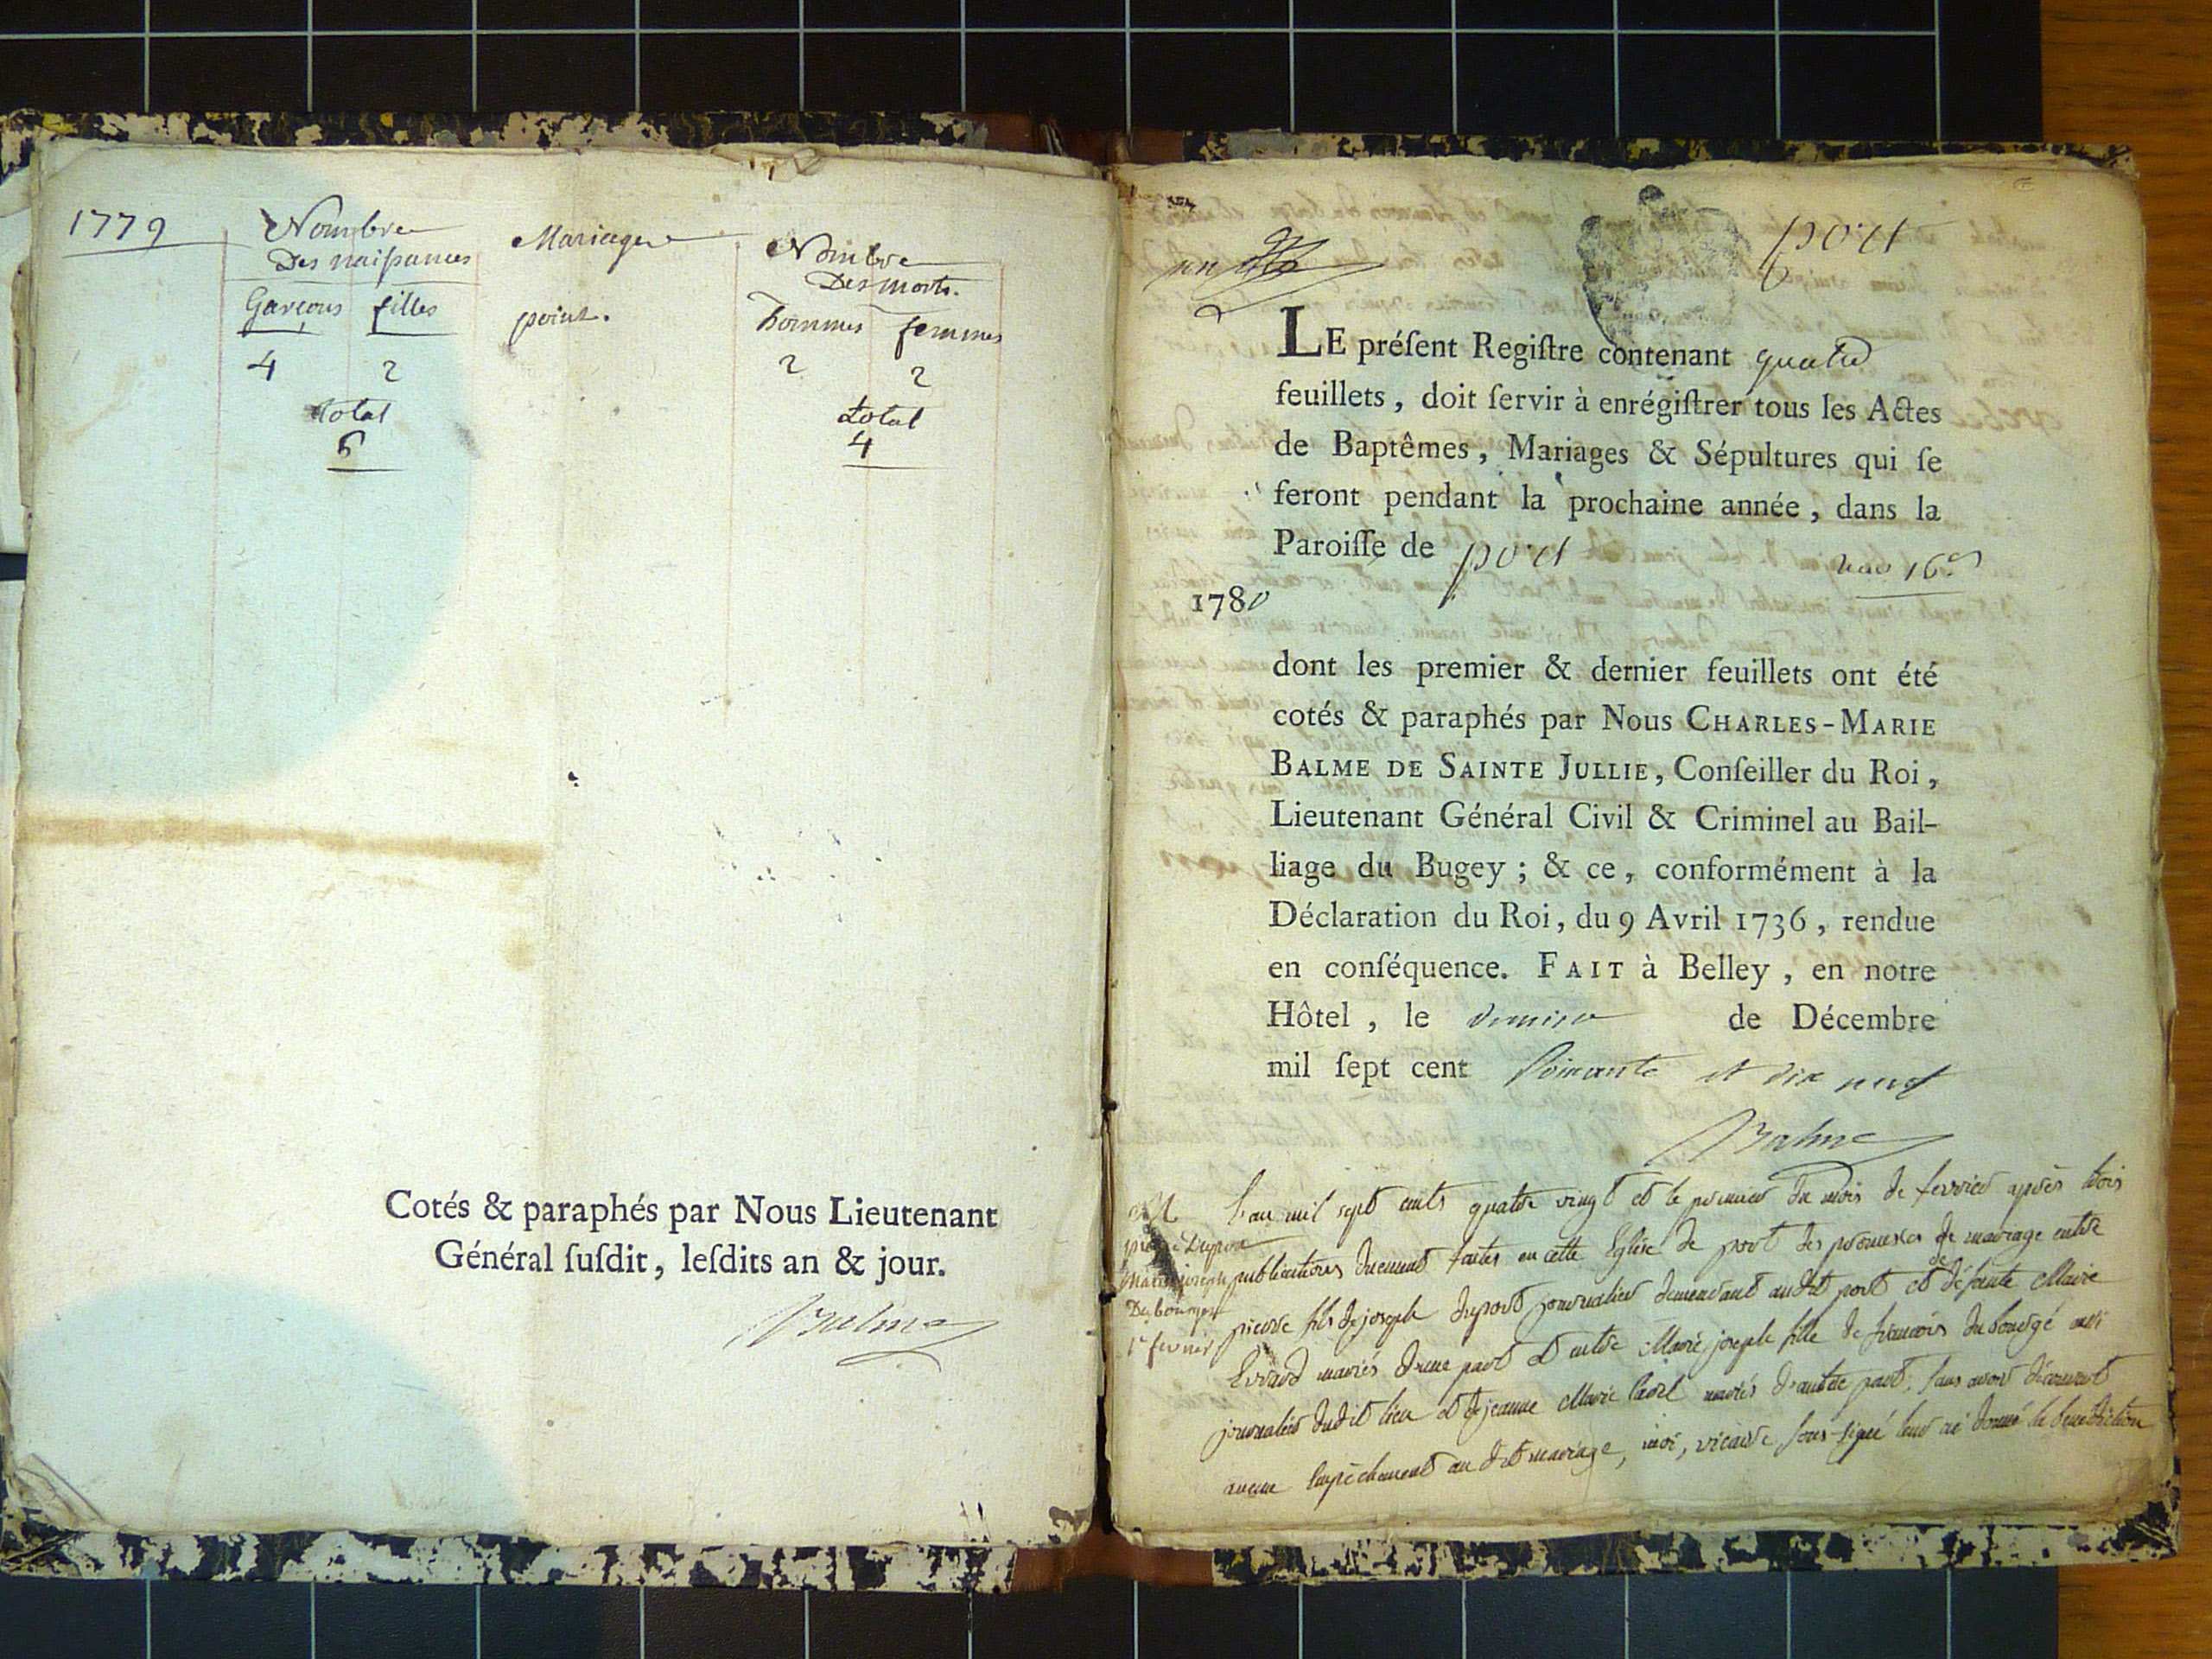 1779
Nombre
Des naissances
Garçons filles
4 2
total
6
Mariage
point.
Nombre
Des morts.
hommes femmes
2 2
total
4
Cotés & paraphés par Nous Lieutenant
Général ſuſdit, leſdits an & jour.
Balme
un
port
LE préſent Regiſtre contenant quatre
feuillets, doit ſervir à enrégiſtrer tous les Actes
de Baptêmes, Mariages & Sépultures qui ſe
feront pendant la prochaine année, dans la
Paroiſſe de port
1780
dont les premier & dernier feuillets ont été
cotés & paraphés par Nous CHARLES-MARIE
BALME DE SAINTE JULLIE, Conſeiller du Roi,
Lieutenant Général Civil & Criminel au Bail-
liage du Bugey ; & ce, conformément à la
Déclaration du Roi, du 9 Avril 1736, rendue
en conſéquence. FAIT à Belley, en notre
Hôtel, le de Décembre
mil ſept cent Soixante et dix neuf
Balme
pierre Duport
Marie joseph
Dubourget
1er fevrier
L'an mil sept cents quatre vingt et le premier du mois de fevrier après trois
publications duement faites en cette Eglise de port des promesses de mariage entre
pierre fils de joseph duport journalier demeurant audit port et de défunte Marie
Evrard mariés d'une part et entre Marie joseph fille de francois du bourgé aussi
journalier dudit lieu et de jeanne Marie mariés d'autre part, sans avoir découvert
aucun Empêchement au dit mariage, moi, vicaire sous-signé leur ai donné la benediction